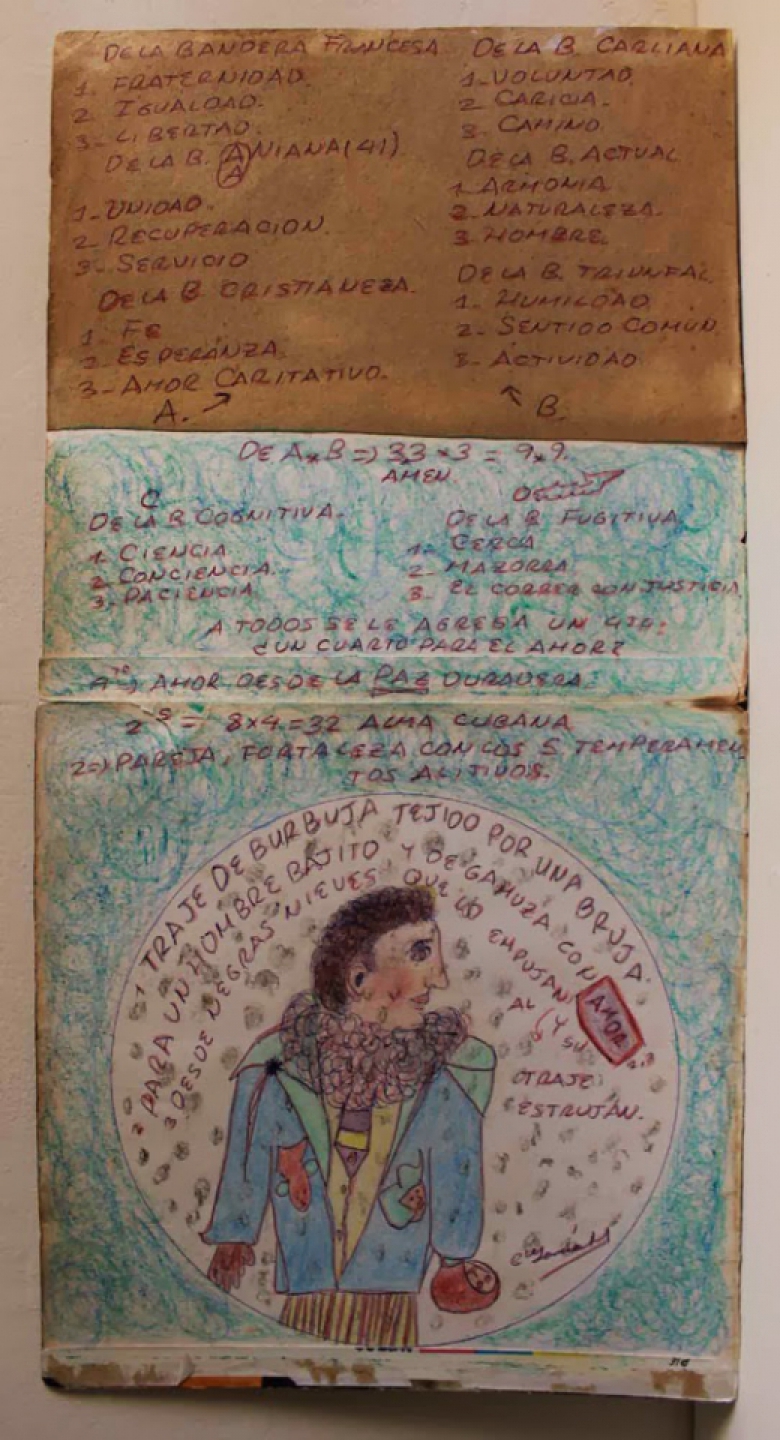 DE LA BANDERA FRANCESA
1. FRATERNIDAD.
2 IGUALDAD.
3- LIBERTAD.
DE LA B. ANIANA (41)
A
1- UNIDAD.
2- RECUPERACION.
3- SERVICIO
DE LA B. CRISTIANEZA.
1- FE
2- ESPERANZA.
3- AMOR CARITATIVO.
A.
DE LA B. CARLIANA
1- VOLUNTAD.
2 CARICIA.
3. CAMINO.
DE LA B. ACTUAL
1- ARMONIA.
2- NATURALEZA.
3 HOMBRE.
DE LA B. TRIUNFAL
1. HUMILDAD.
2- SENTIDO COMÚN
3- ACTIVIDAD
B.
DE A x B => 33 x 3 = 9 x 9.
AMEN.
C
DE LA B. COGNITIVA.
1. CIENCIA
2- CONCIENCIA.
3- PACIENCIA.
DE LA B. FUGITIVA
1- CERCA
2- MAZORRA.
3. EL CORRER CON JUSTICIA
A TODOS SE LE AGREGA UN
¿UN CUARTO PARA EL AMOR?
AMOR DESDE LA PAZ DURADERA.
= 8x4=32 ALMA CUBANA
2=) PAREJA, FORTALEZA CON LOS 5 TEMPERAMEN
TOS ALITIVOS.
1 TRAJE DE BURBUJA TEJIDO POR UNA BRUJA.
2 PARA UN HOMBRE BAJITO Y DE GAMUZA CON
AMOR
3 DESDE NEGRAS NIEVES QUE LO EMPUJAN
AL (Y
SU
TRAJE
ESTRUJÁN.